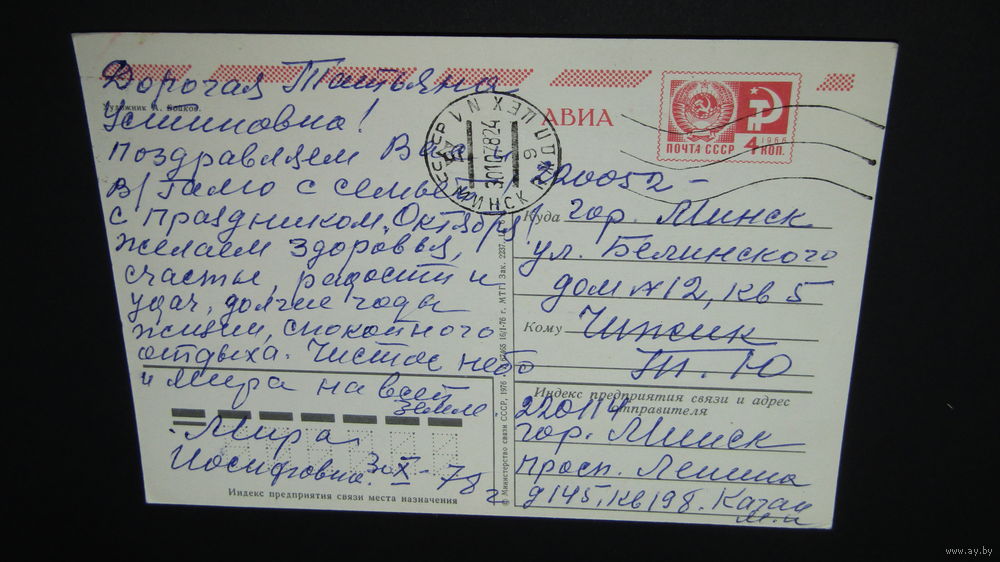 Дорогая Татьяна
Художник А. Бойков.
Устиновна!
поздравляем Вас
в/ Тамю с семьей
с праздником Октября!
желаем здоровья,
счастья, радости и
удач, долгие годы
жизни, спокойного
отдыха. Чистое небо
и мира на всей
земле
Мира
Иосифовна. 30 X - 78 г
Индекс предприятия связи места назначения
АВИА
ПОЧТА СССР 4 КОП.
1966
МИНСК
30107824
220052 -
Куда гор. Минск
ул. Белинского
дом №12, кв 5
Кому Чижик
Т. Ю
Индекс предприятия связи и адрес
отправителя
220114
гор. Минск
просп. Ленина
д 145, кв 198. Каган
М. И
© Министерство связи СССР, 1976
16/I-76 г. МТГ Зак. 2237.
www.ay.by